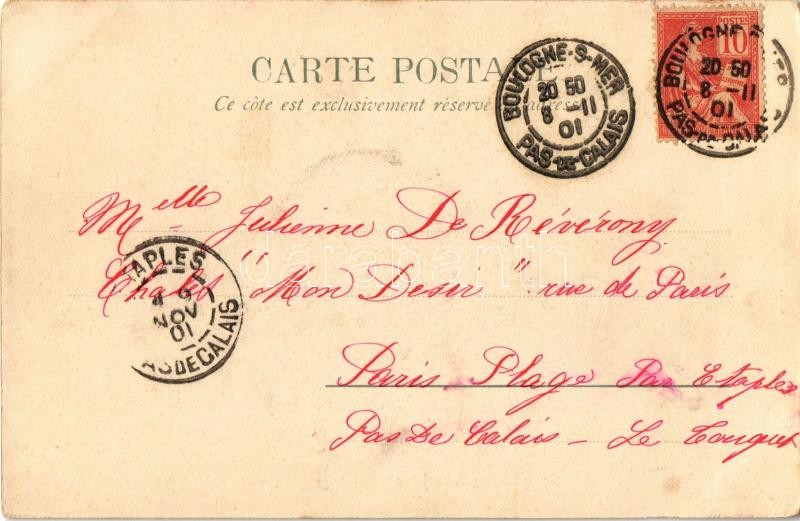 CARTE POSTALE
Ce côte est exclusivement réservé à l'adresse
BOULOGNE-S-MER
20 50
8 - 11
01
PAS-DE-CALAIS
POSTES
10
BOULOGNE-S-MER
20 50
8 - 11
01
PAS-DE-CALAIS
Melle Julienne De Révérony
Chalet "Mon Desir" rue de Paris
Paris Plage Par Etaples
Pas De Calais - Le Touquet
TAPLES
9
NOV
01
PASDECALAIS
darabanth